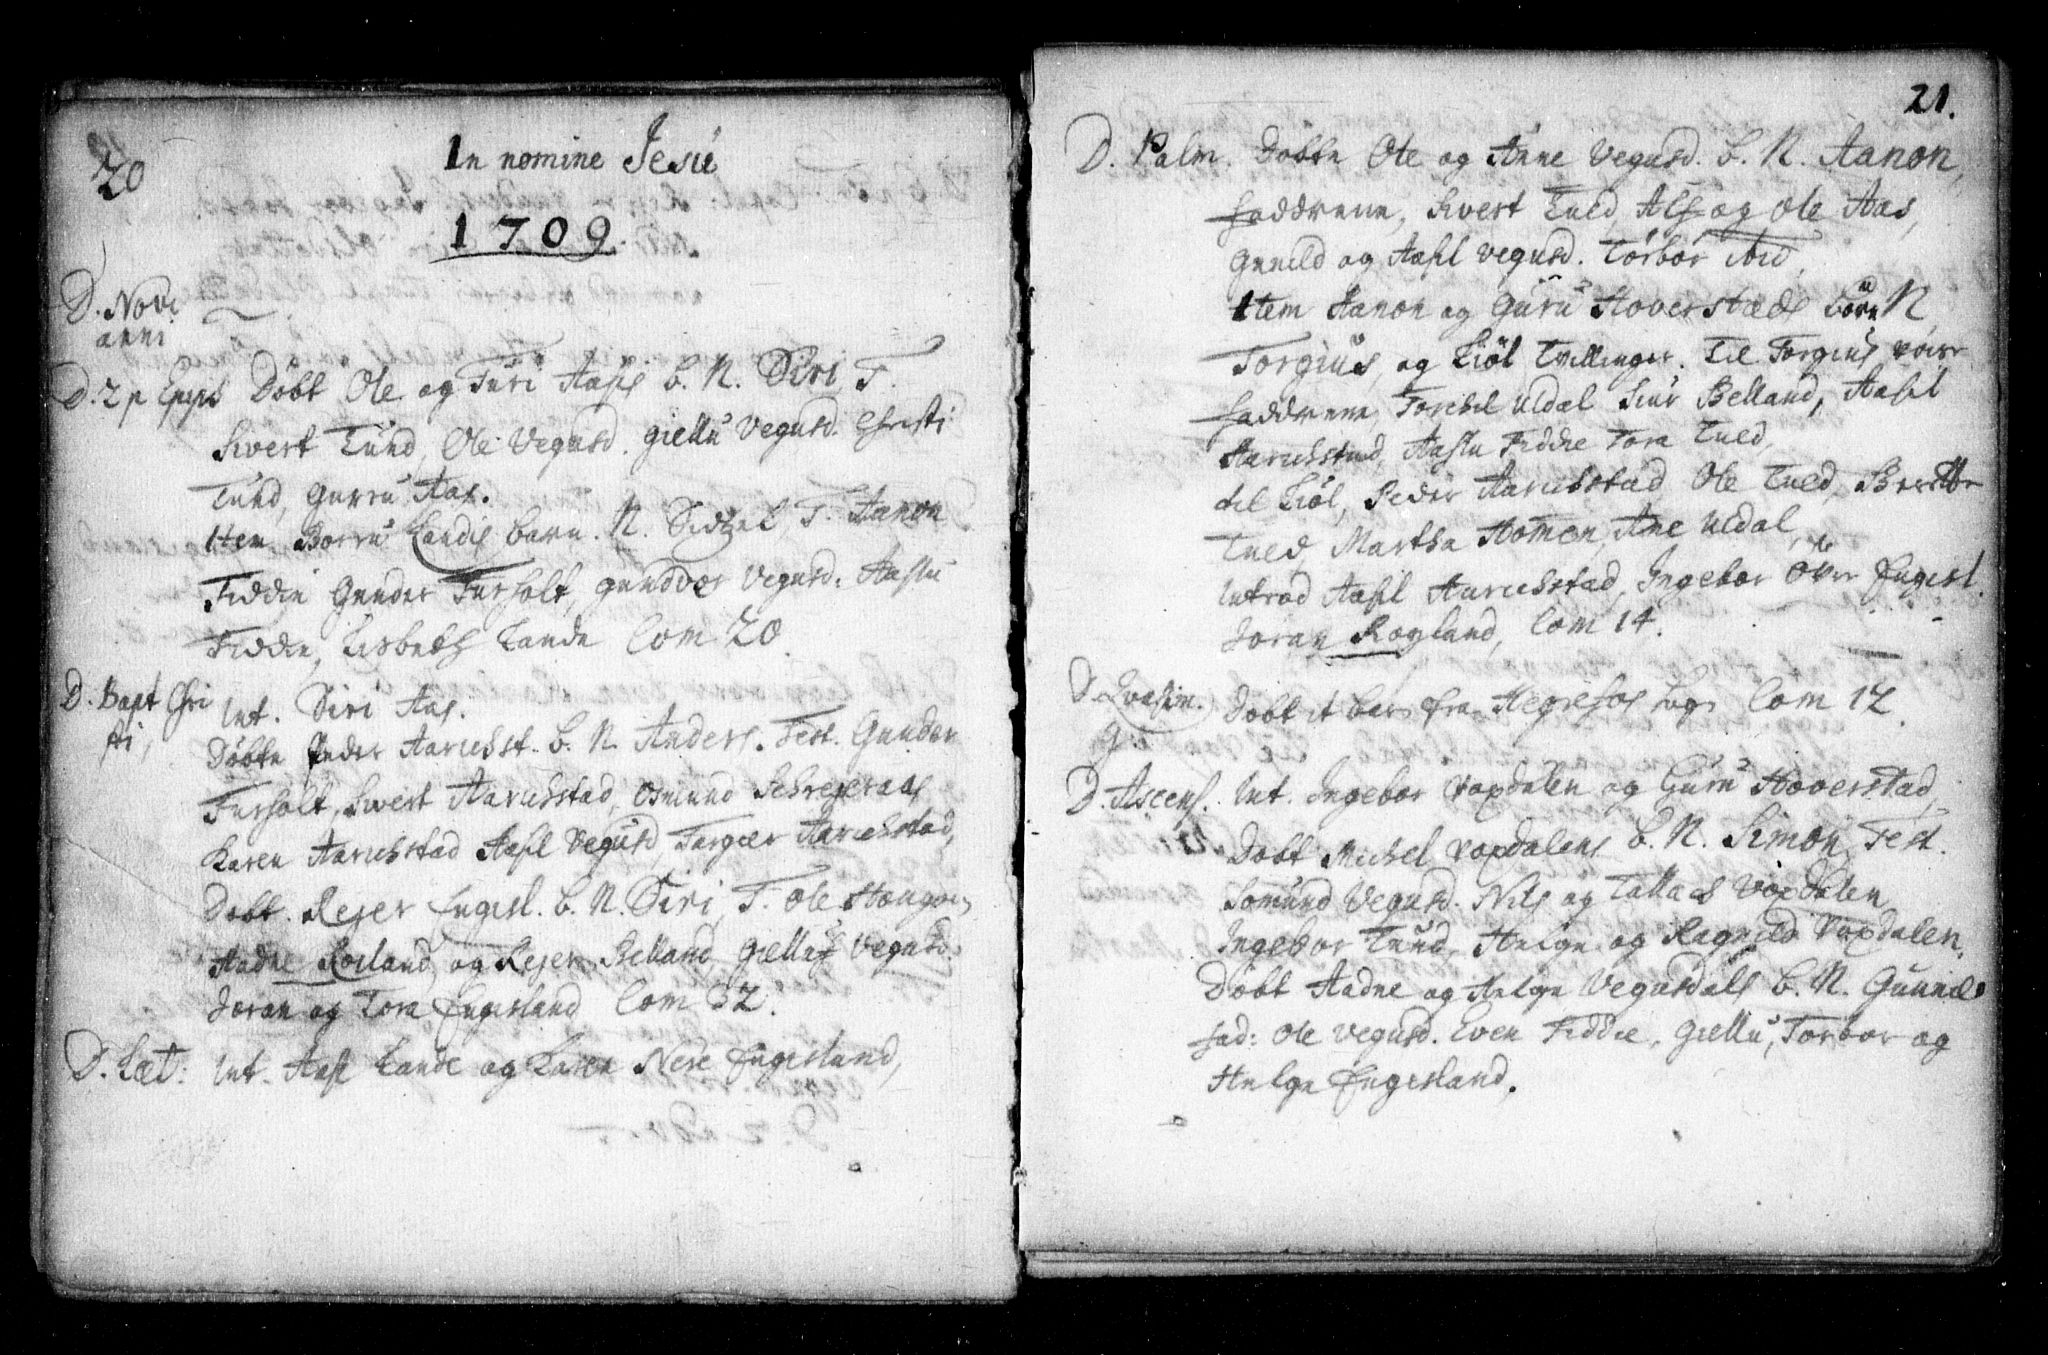 20
In nomine Jesu
1709.
D. Novi
anni
D. 2 p Epiph Döbt Ole og Turi Aases b. N. Siri, T.
Sivert Tund, Ole Vegusd. Giellu Vegusd. Christi
Tund, Gurru Aas.
Item Borru Landis barn. N. Sidzel, T. Aanon
Fiddie Gunder Furholt, Gundvor Vegusd. Aaslu
Fiddie, Lisbeth Lande Com 20.
D. Bapt Chri
sti,
Int. Siri Aas.
Döbte Peder Aarichst. b. N. Anders. Test. Gunder
Furholt, Sivert Aarichstad, Osmund Schrejeraas
Karen Aarichstad Aasil Vegusd, Torgier Aarichstad,
Döbt. Rejer Engesl. b. N. Siri, T. Ole Haugaas
Aadne Roiland, og Rejer Belland, Giellu Vegusd.
Joran og Tora Engesland Com 32.
D. Læt: Int. Aase Lande og Karen Nere Engesland,
21.
D. Palm. Döbte Ole og Anne Vegusd. b. N. Aanon,
faddrene, Sivert Tued, Alf og Ole Aas,
Gunild og Aasil Vegusd. Torbor ibid.
Item Aanon og Guru Hoverstads börn N
Torgius, og Kiöl Tvillinger. Til Torgius vare
faddrene, Torchil Uldal Siur Belland, Aasil
Aarichstad, Aaslu Fiddie Tora Tued,
til Kiöl, Peder Aarichstad Ole Tued, Berette
Tued, Martha Homen, Ane Uldal,
Introd Aasil Aarichstad, Ingebor Övre Engesl.
Joran Rogland, Com 14.
D. Qvasim.
g.
Döbt it barn fra Hegrefos sogn Com 12.
D. Ascens. Int. Ingebor Voxdalen og Guru Hoverstad,
Döbt Michel Voxdalens b. N. Simon, Test.
Somund Vegusd. Nils og Tallach Voxdalen
Ingebor Tued, Helge og Ragnild Voxdalen.
Döbt Aadne og Helge Vegusdals b. N. Gunnild
fad: Ole Vegusd. Even Fiddie, Giellu, Torbor og
Helge Engesland.